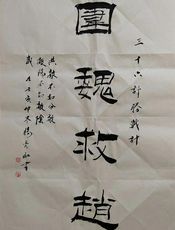 三十六計勝戰計
圍魏救趙
共敵不如分敵
敵陽不如敵陰